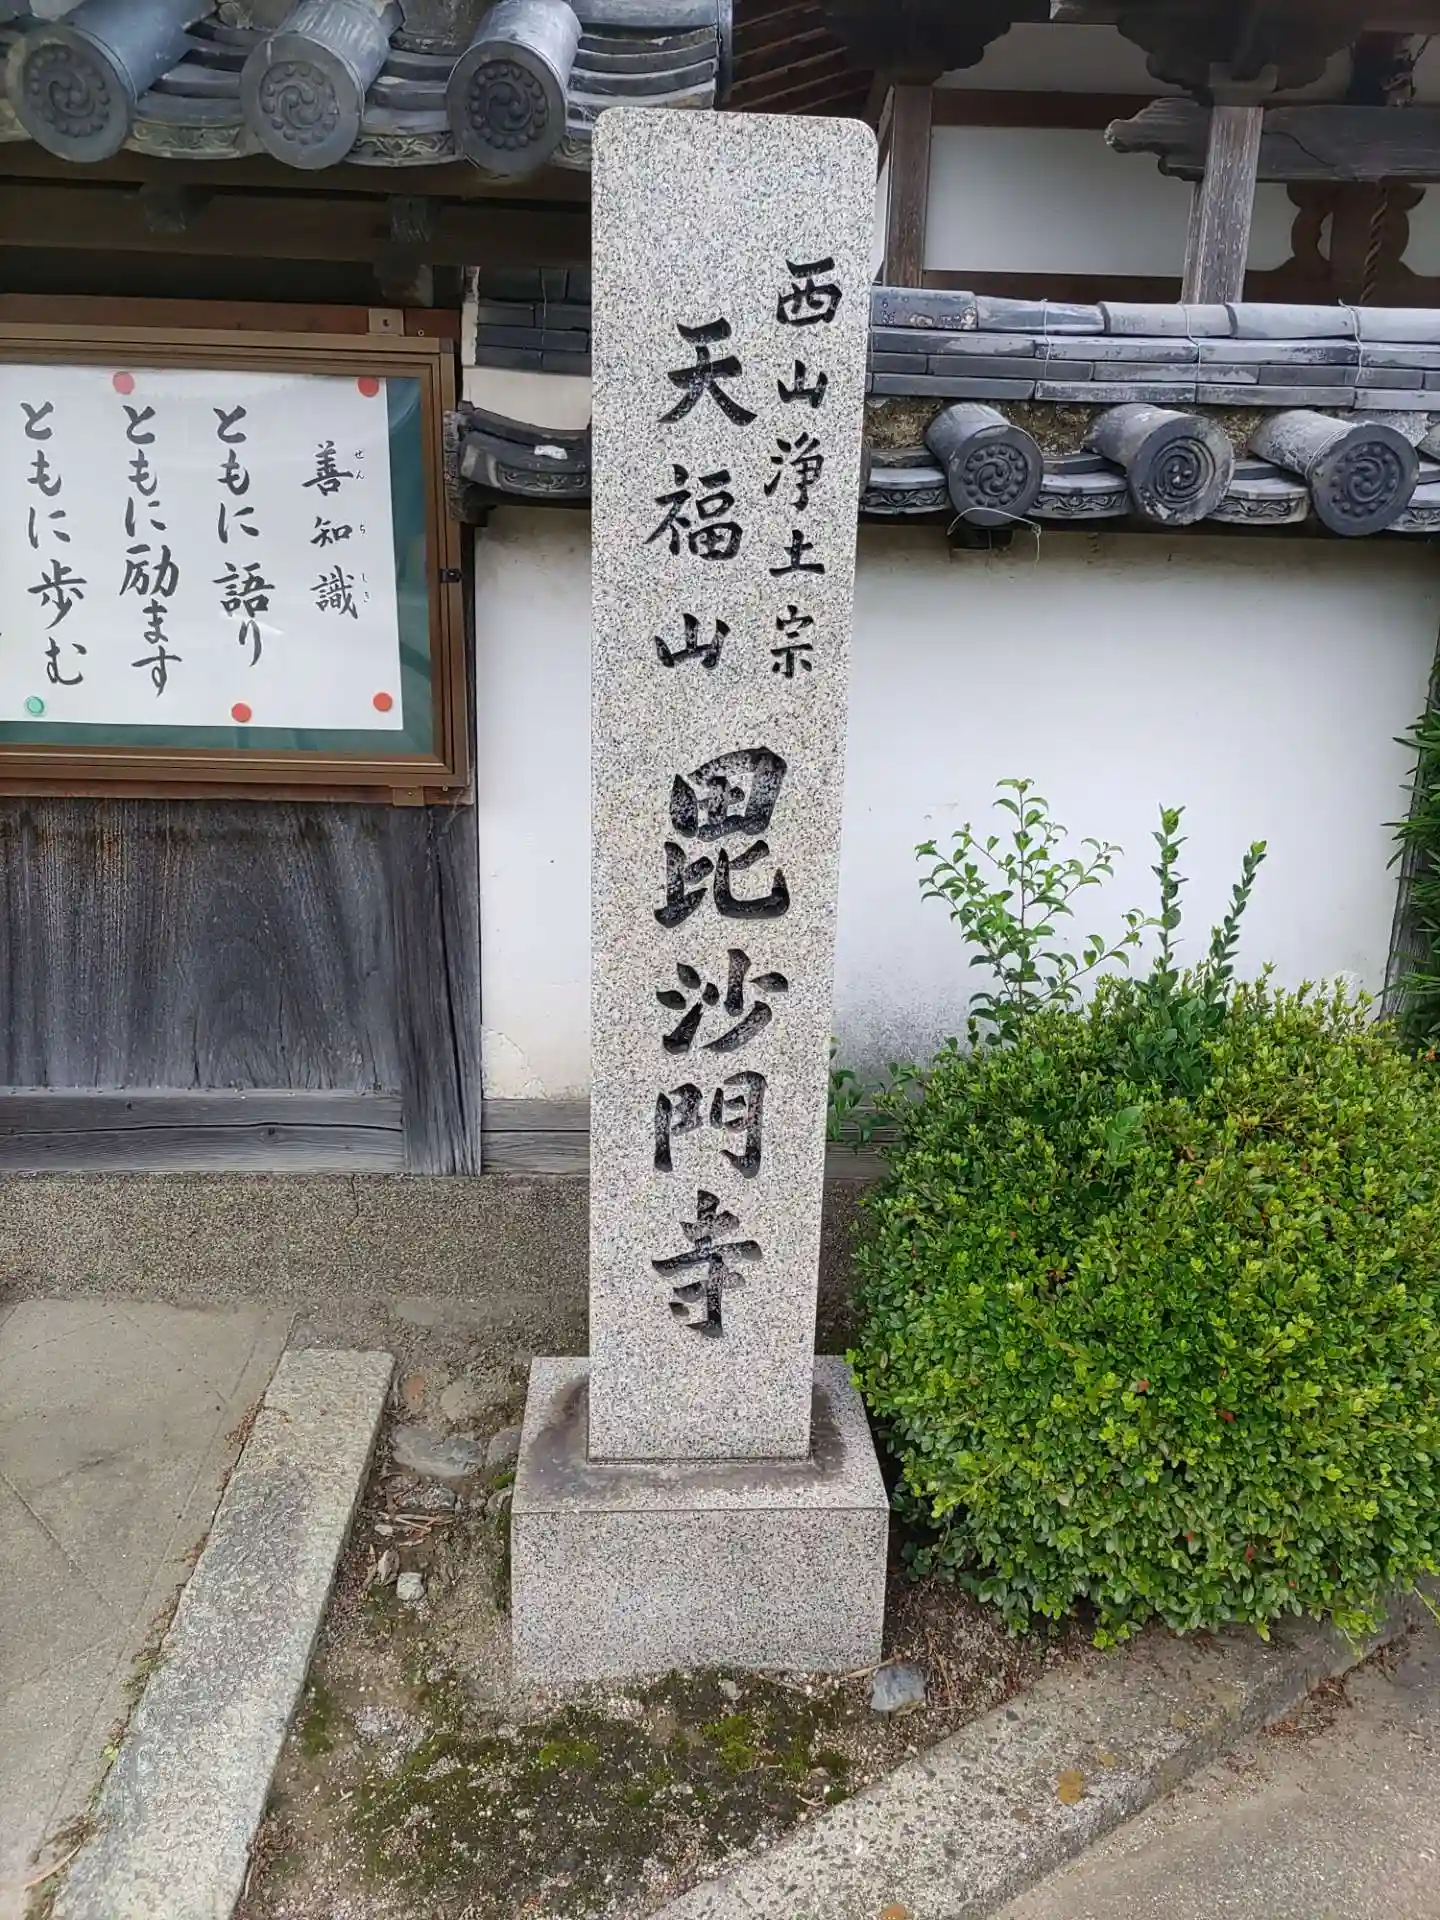 西山浄土宗
天福山 毘沙門寺
善知識
せんちしき
ともに語り
ともに励ます
ともに歩む